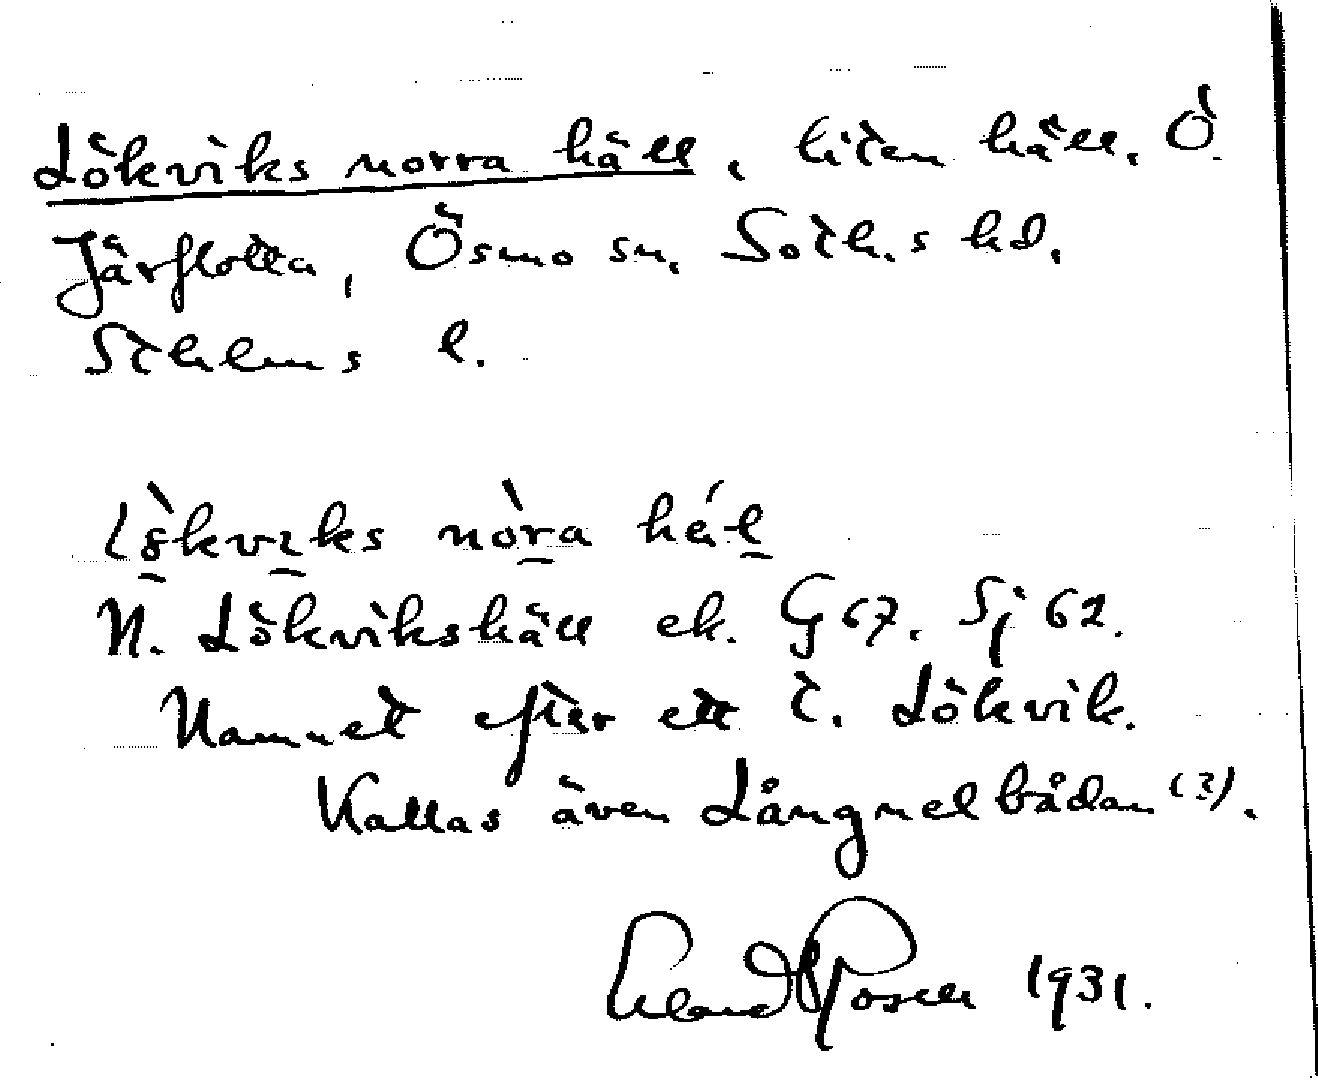 Lökviks norra häll, liten häll. Ö.
Järflotta, Ösmo sn. Soth.s hd.
Sthlms l.
N. Lökvikshäll ek. G 67. Sj 62.
Namnet efter ett t. Lökvik.
Kallas även Långnelbådan (3).
Erland Rosell 1931.